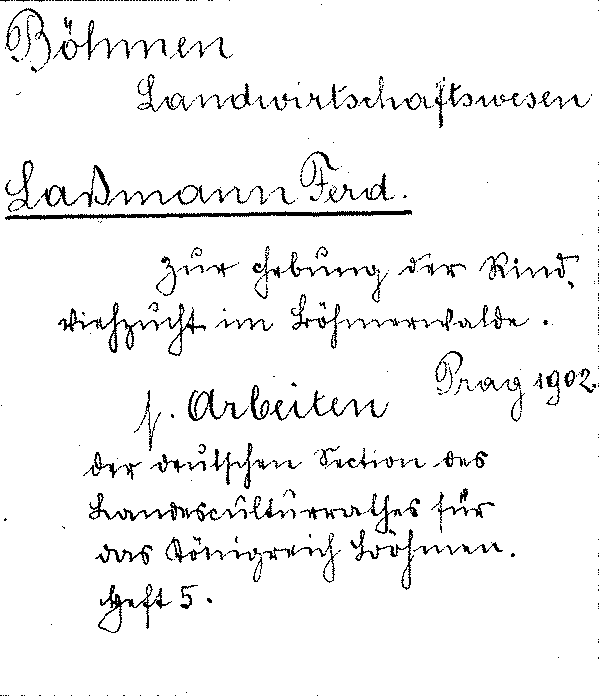 Böhmen
Landwirtschaftswesen
Laßmann Ferd.
Zur Hebung der Rind-
viehzucht im Böhmerwalde.
Prag 1902.
s. Arbeiten
der deutschen Section des
Landesculturrathes für
das Königreich Böhmen.
Heft 5.